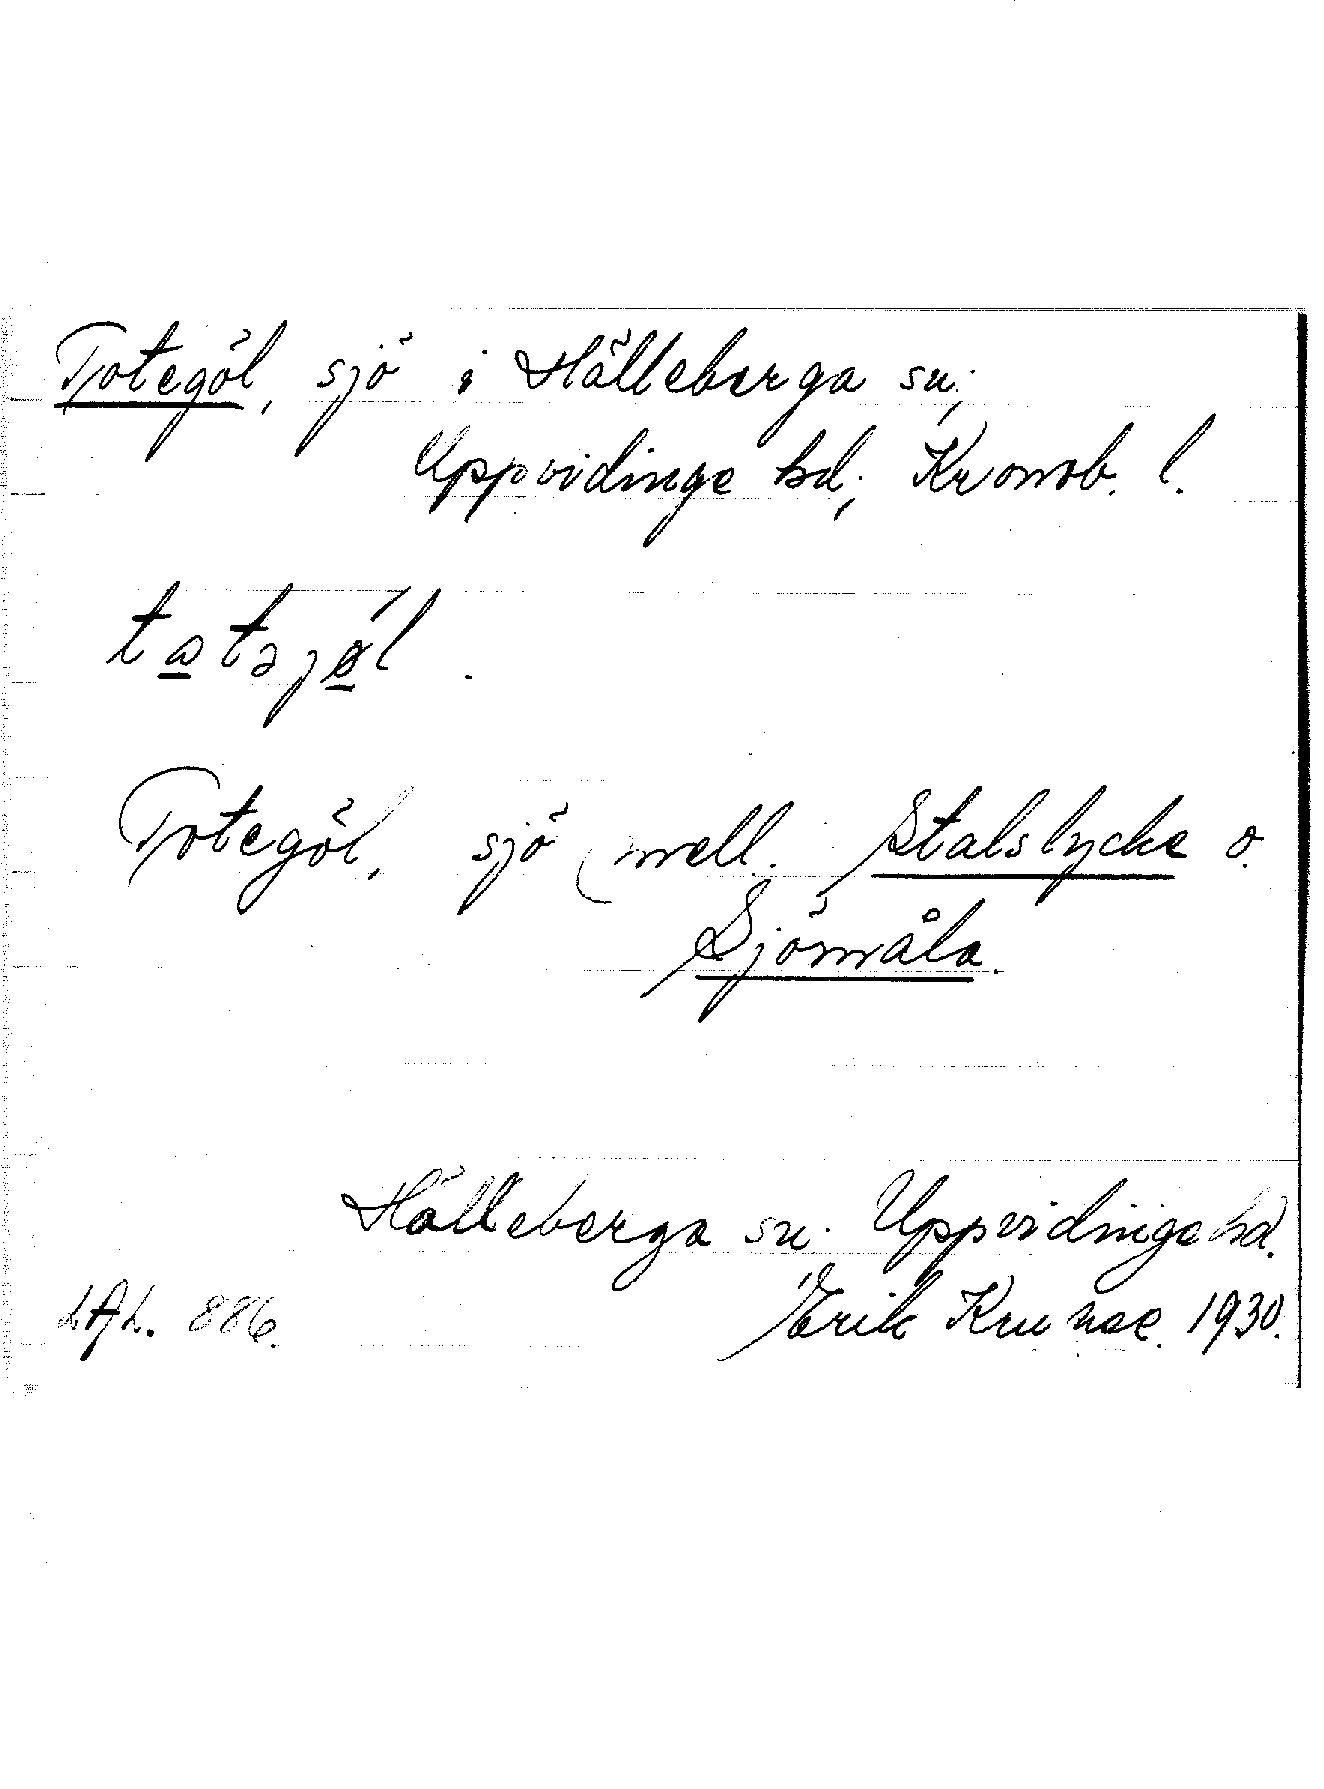 Totegöl, sjö i Hälleberga sn;
Uppvidinge hd; Kronob. l.
tatəjøl.
Totegöl, sjö mell. Stalslycke o.
Sjömåla.
Hälleberga sn. Uppvidinge hd.
LAL. 886. Erik Kruuse. 1930.